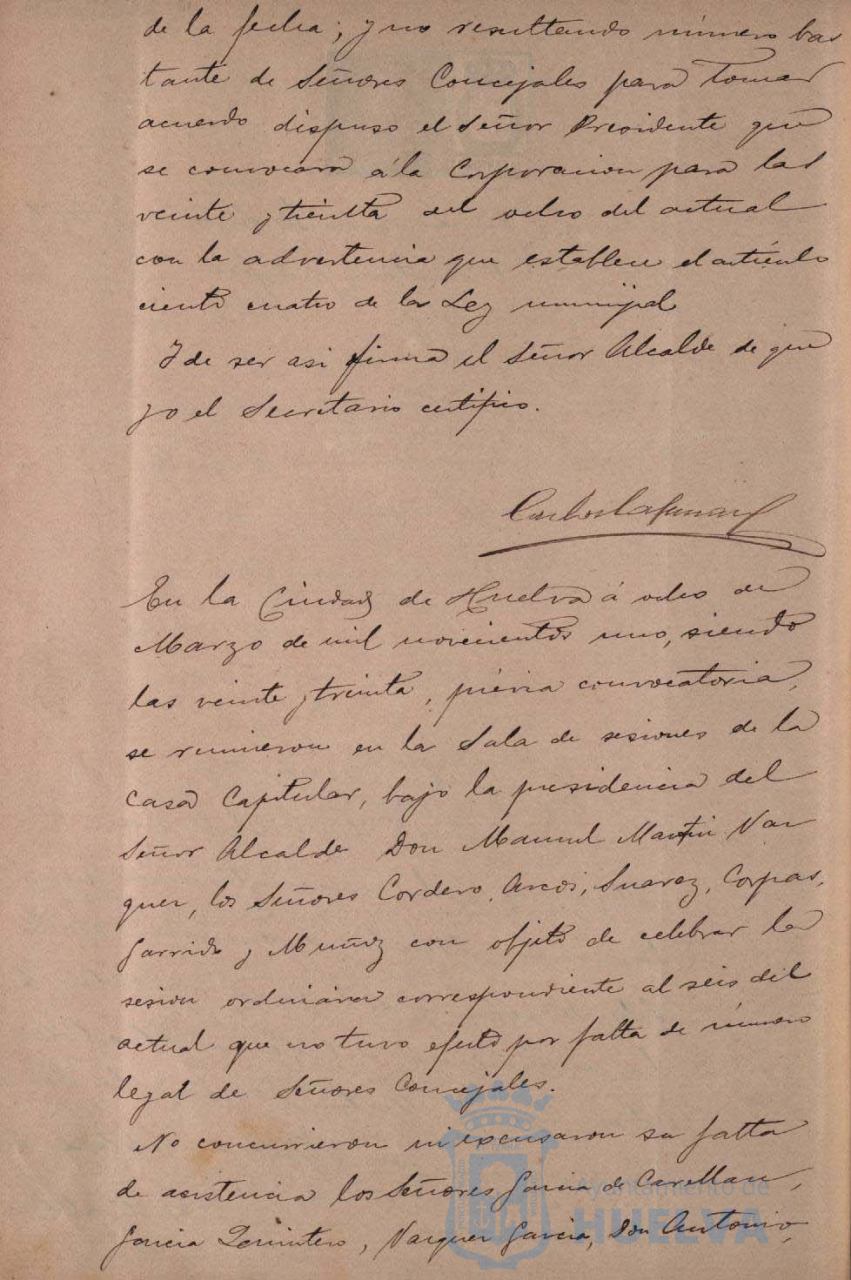 de la fecha; y no resultando número bas
tante de Señores Concejales para tomar
acuerdo dispuso el Señor Presidente que
se convocara á la Corporacion para las
veinte y treinta del ocho del actual
con la advertencia que establece el artículo
ciento cuatro de la Ley municipal
Y de ser asi firma el Señor Alcalde de que
yo el Secretario certifico.
En la Ciudad de Huelva á ocho de
Marzo de mil novecientos uno, siendo
las veinte y treinta, prévia convocatoria,
se reunieron en la Sala de sesiones de la
Casa Capitular, bajo la presidencia del
Señor Alcalde Don Manuel Martin Vaz
quez, los Señores Cordero, Arcos, Suarez, Corpas,
Garrido y Muñoz con objeto de celebrar la
sesion ordinaria correspondiente al seis del
actual que no tuvo efecto por falta de número
legal de Señores Concejales.
No concurrieron ni excusaron su falta
de asistencia los Señores Garcia de
Garcia Quintero, Vazquez Garcia, Don Antonio,
Ayuntamiento de
HUELVA